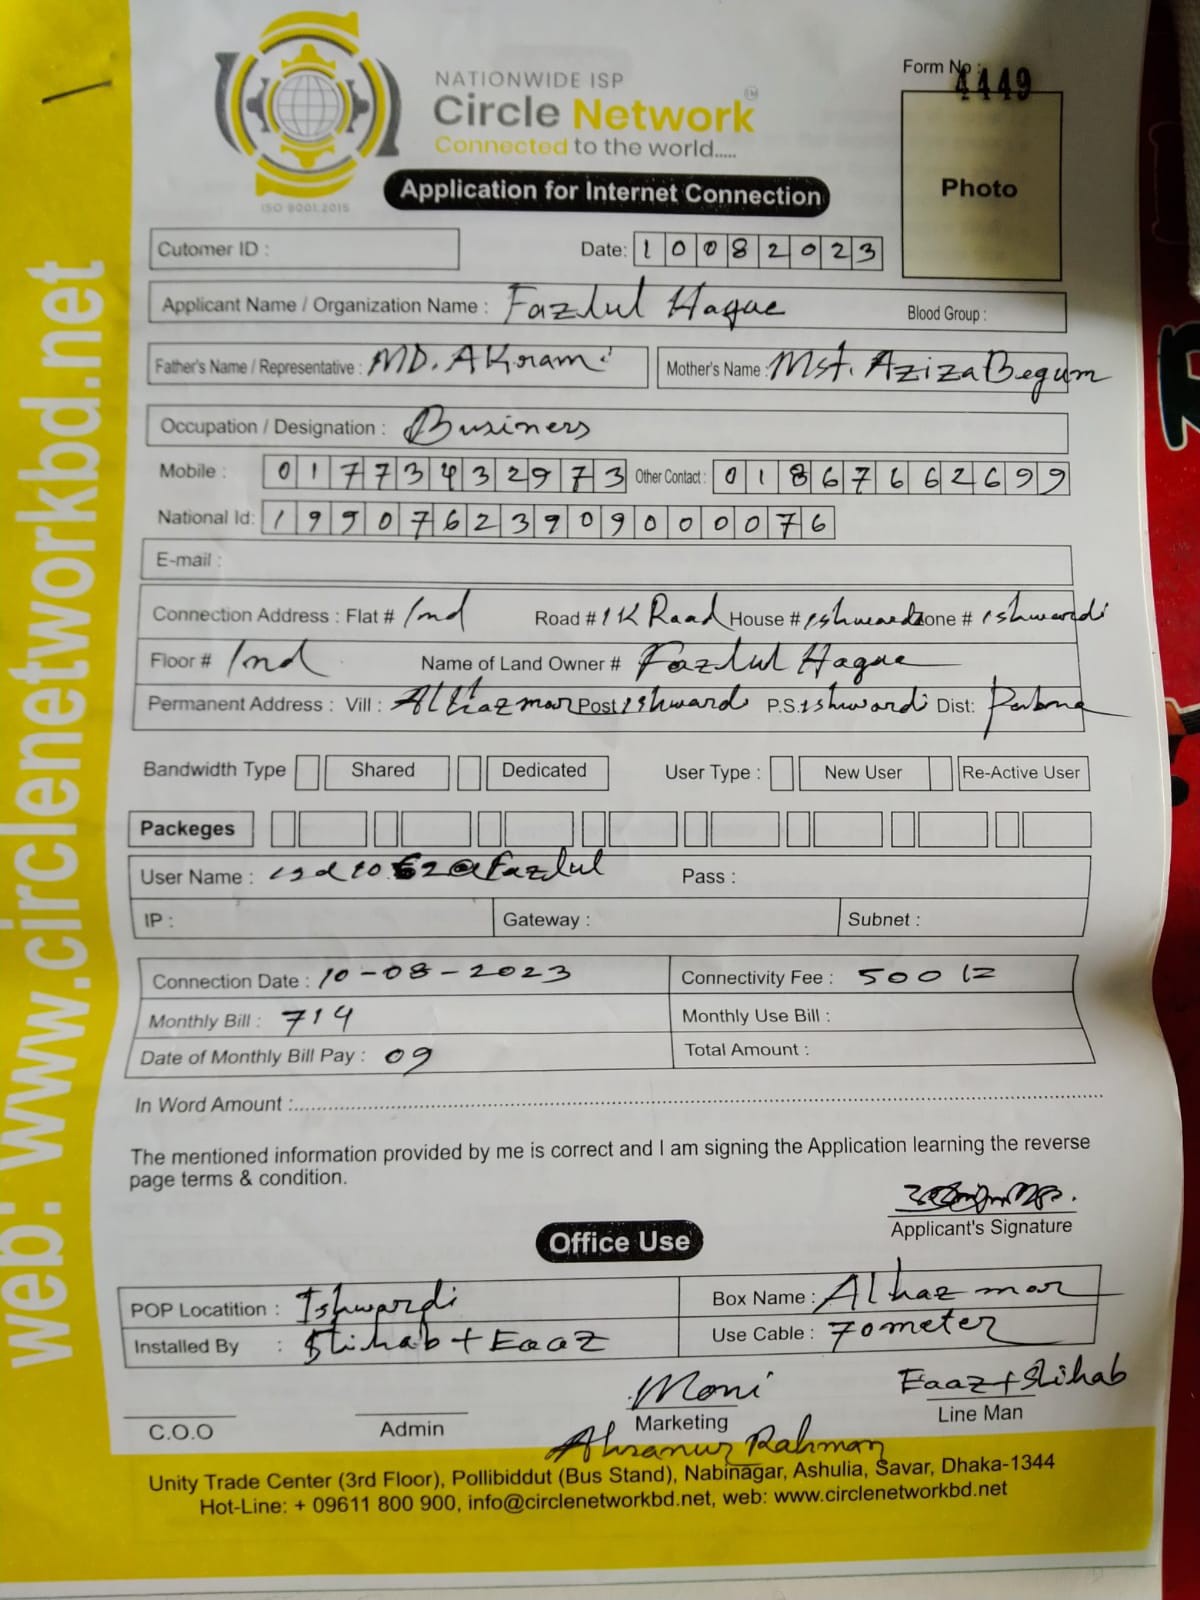 NATIONWIDE ISP
Circle Network
Connected to the world.....
ISO 9001:2015
Form No : 4449
Photo
Application for Internet Connection
Cutomer ID :
Date: 10082023
Applicant Name / Organization Name : Fazlul Haque Blood Group :
Father's Name / Representative : MD. AKram Mother's Name : Mst. Aziza Begum
Occupation / Designation : Business
Mobile : 01773432973 Other Contact : 01867662699
National Id: 199076239090000076
E-mail :
Connection Address : Flat # 1nd Road # 1K Road House # ishwardi Zone # ishwardi
Floor # 1nd Name of Land Owner # Fazlul Haque
Permanent Address : Vill : Alhazmor Post ishwardi P.S. ishwardi Dist: Pabna
Bandwidth Type Shared Dedicated User Type : New User Re-Active User
Packeges
User Name : @Fazlul Pass :
IP : Gateway : Subnet :
Connection Date : 10-08-2023 Connectivity Fee : 500/=
Monthly Bill : 714 Monthly Use Bill :
Date of Monthly Bill Pay : 09 Total Amount :
In Word Amount :
The mentioned information provided by me is correct and I am signing the Application learning the reverse
page terms & condition.
Applicant's Signature
Office Use
POP Locatition : Ishwardi Box Name : Alhaz mor
Installed By : Shihab + Eaaz Use Cable : 70meter
Moni Eaaz+Shihab
C.O.O Admin Marketing Line Man
Ahsanur Rahman
Unity Trade Center (3rd Floor), Pollibiddut (Bus Stand), Nabinagar, Ashulia, Savar, Dhaka-1344
Hot-Line: + 09611 800 900, info@circlenetworkbd.net, web: www.circlenetworkbd.net
web: www.circlenetworkbd.net